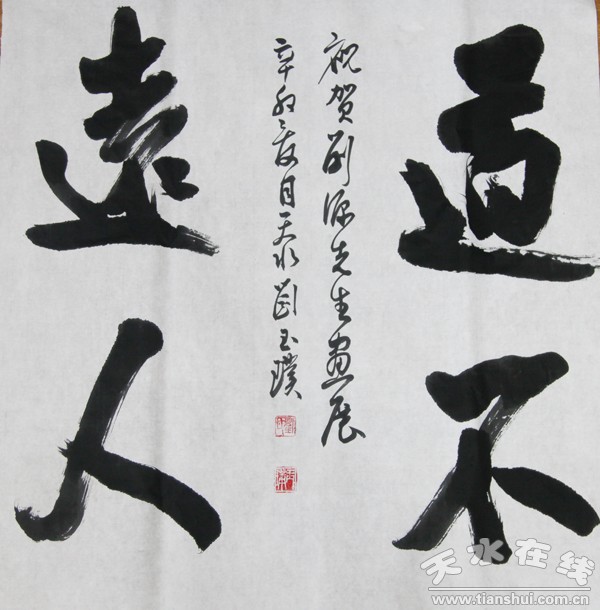 道不
遠人
祝贺刘源先生画展
辛卯之夏月天水劉玉璞
天水在线
www.tianshui.com.cn